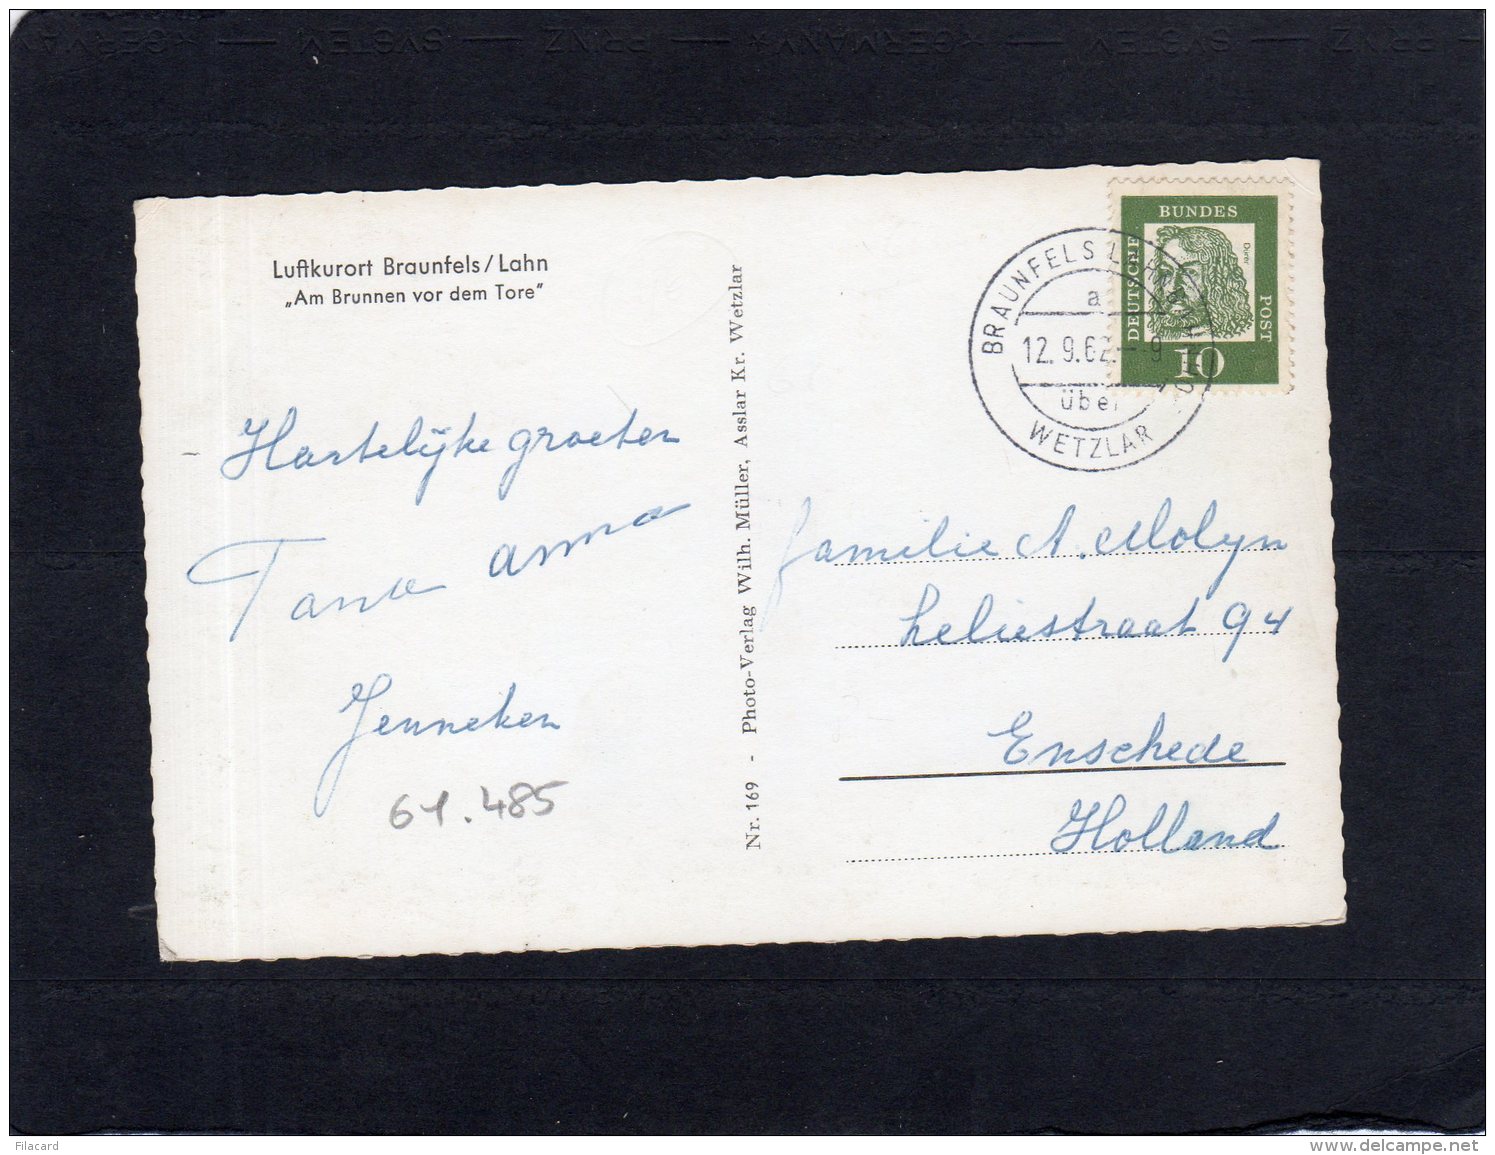 SYSTEM — PRINZ — ★GERMANY★ — SYSTEM — PRINZ — ★GERMANY★
Luftkurort Braunfels/Lahn
„Am Brunnen vor dem Tore“
Hartelijke groeten
Tante Anna
Jenneken
61.485
Nr. 169 - Photo-Verlag Wilh. Müller, Asslar Kr. Wetzlar
BRAUNFELS LAHN
a
12.9.62.-9
über
WETZLAR
BUNDES
DEUTSCHE
POST
Dürer
10
familie A. Molyn
Leliestraat 94
Enschede
Holland
Filacard
www.delcampe.net